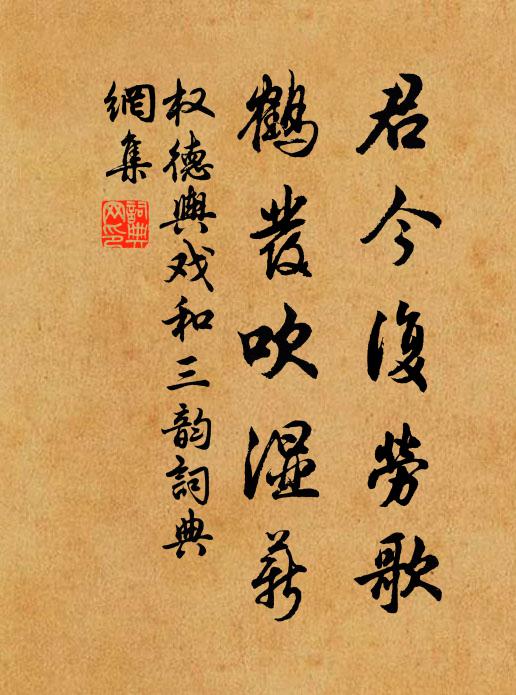 君今復勞歌
鶴發吹濕薪
权德輿戏和三韵詞典
網集
詞典
网印